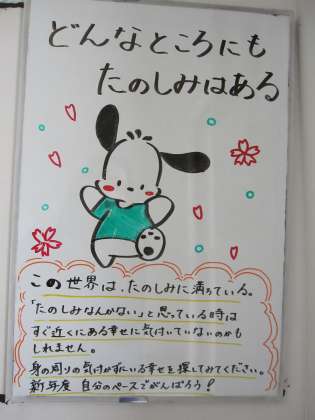 どんなところにも
たのしみはある
この世界は、たのしみに満ちている。
「たのしみなんかない」と思っている時は
すぐ近くにある幸せに気付いていないのかも
しれません。
身の周りの気付かずにいる幸せを探してみてください。
新年度 自分のペースでがんばろう!